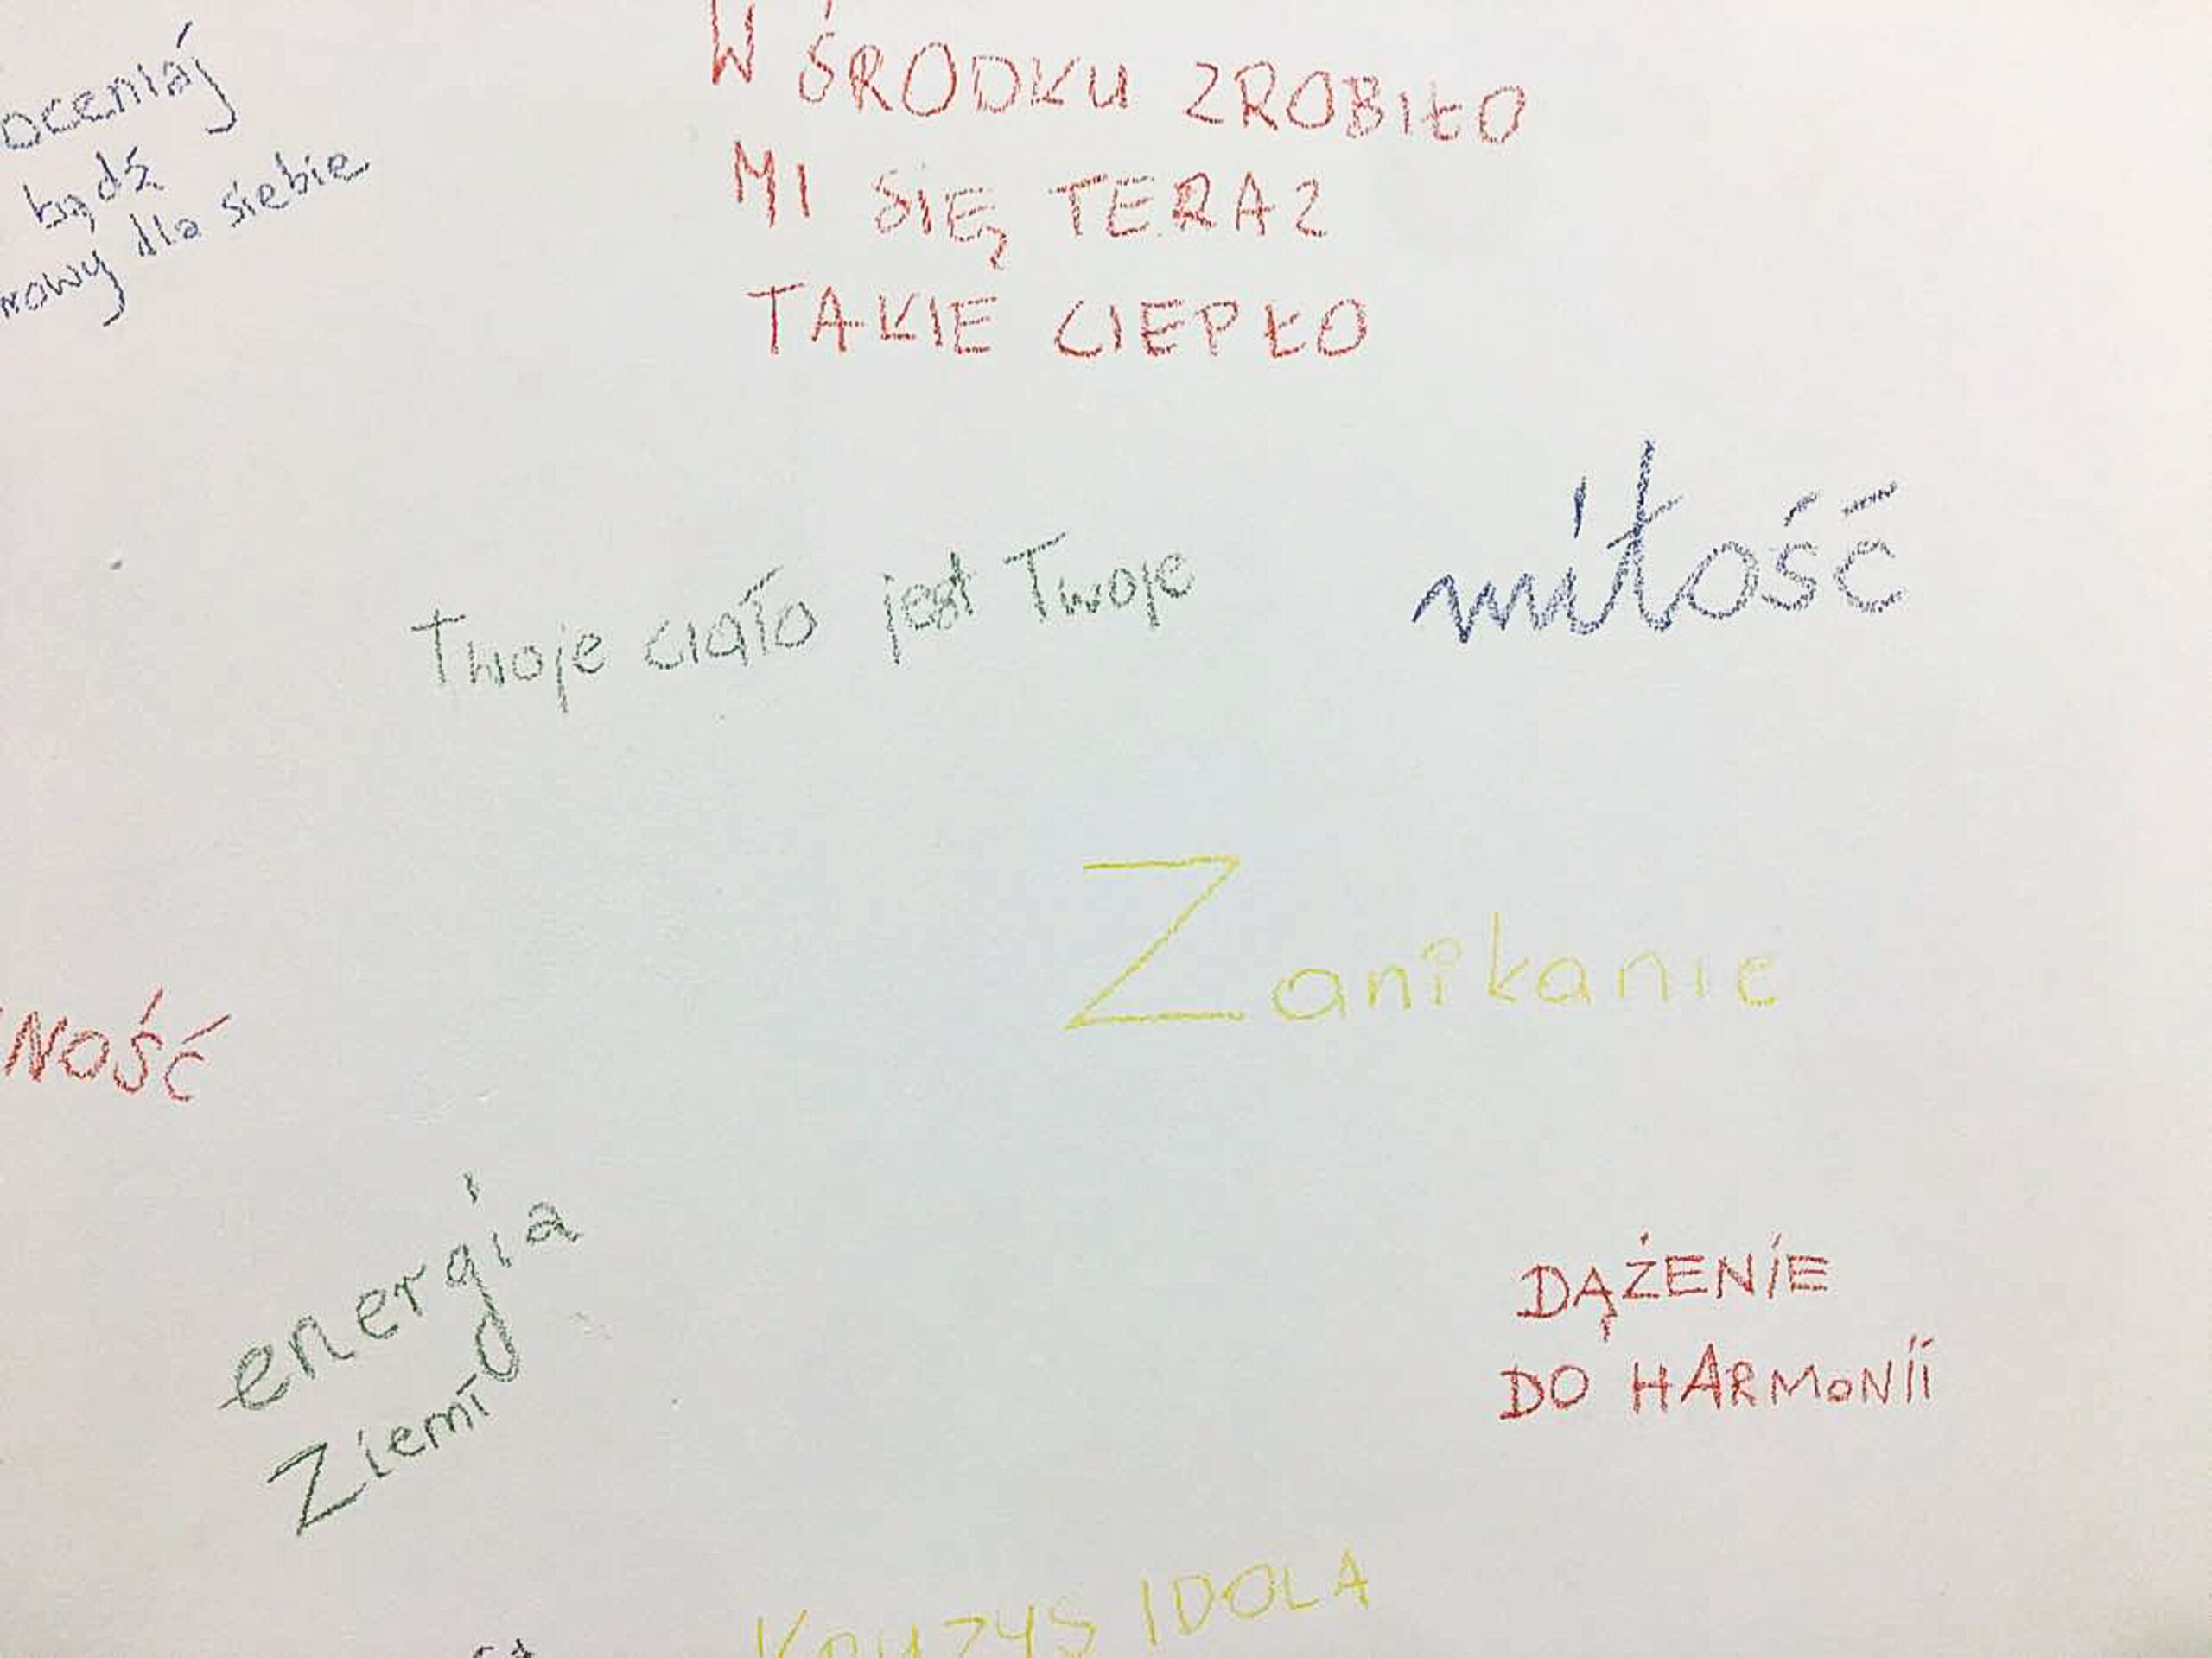 oceniaj
bądź
dla siebie
W ŚRODKU ZROBIŁO
MI SIĘ TERAZ
TAKIE CIEPŁO
Twoje ciało jest Twoje
miłość
Zanikanie
NOŚĆ
energia
Ziemi
DĄŻENIE
DO HARMONII
IDOLA